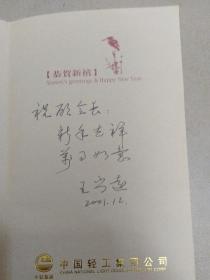 【恭贺新禧】
Season's greetings & Happy New Year
祝顾会长:
新年吉祥
万事如意
王尚
2001.12.
中国轻工集团公司
CHINA NATIONAL LIGHT